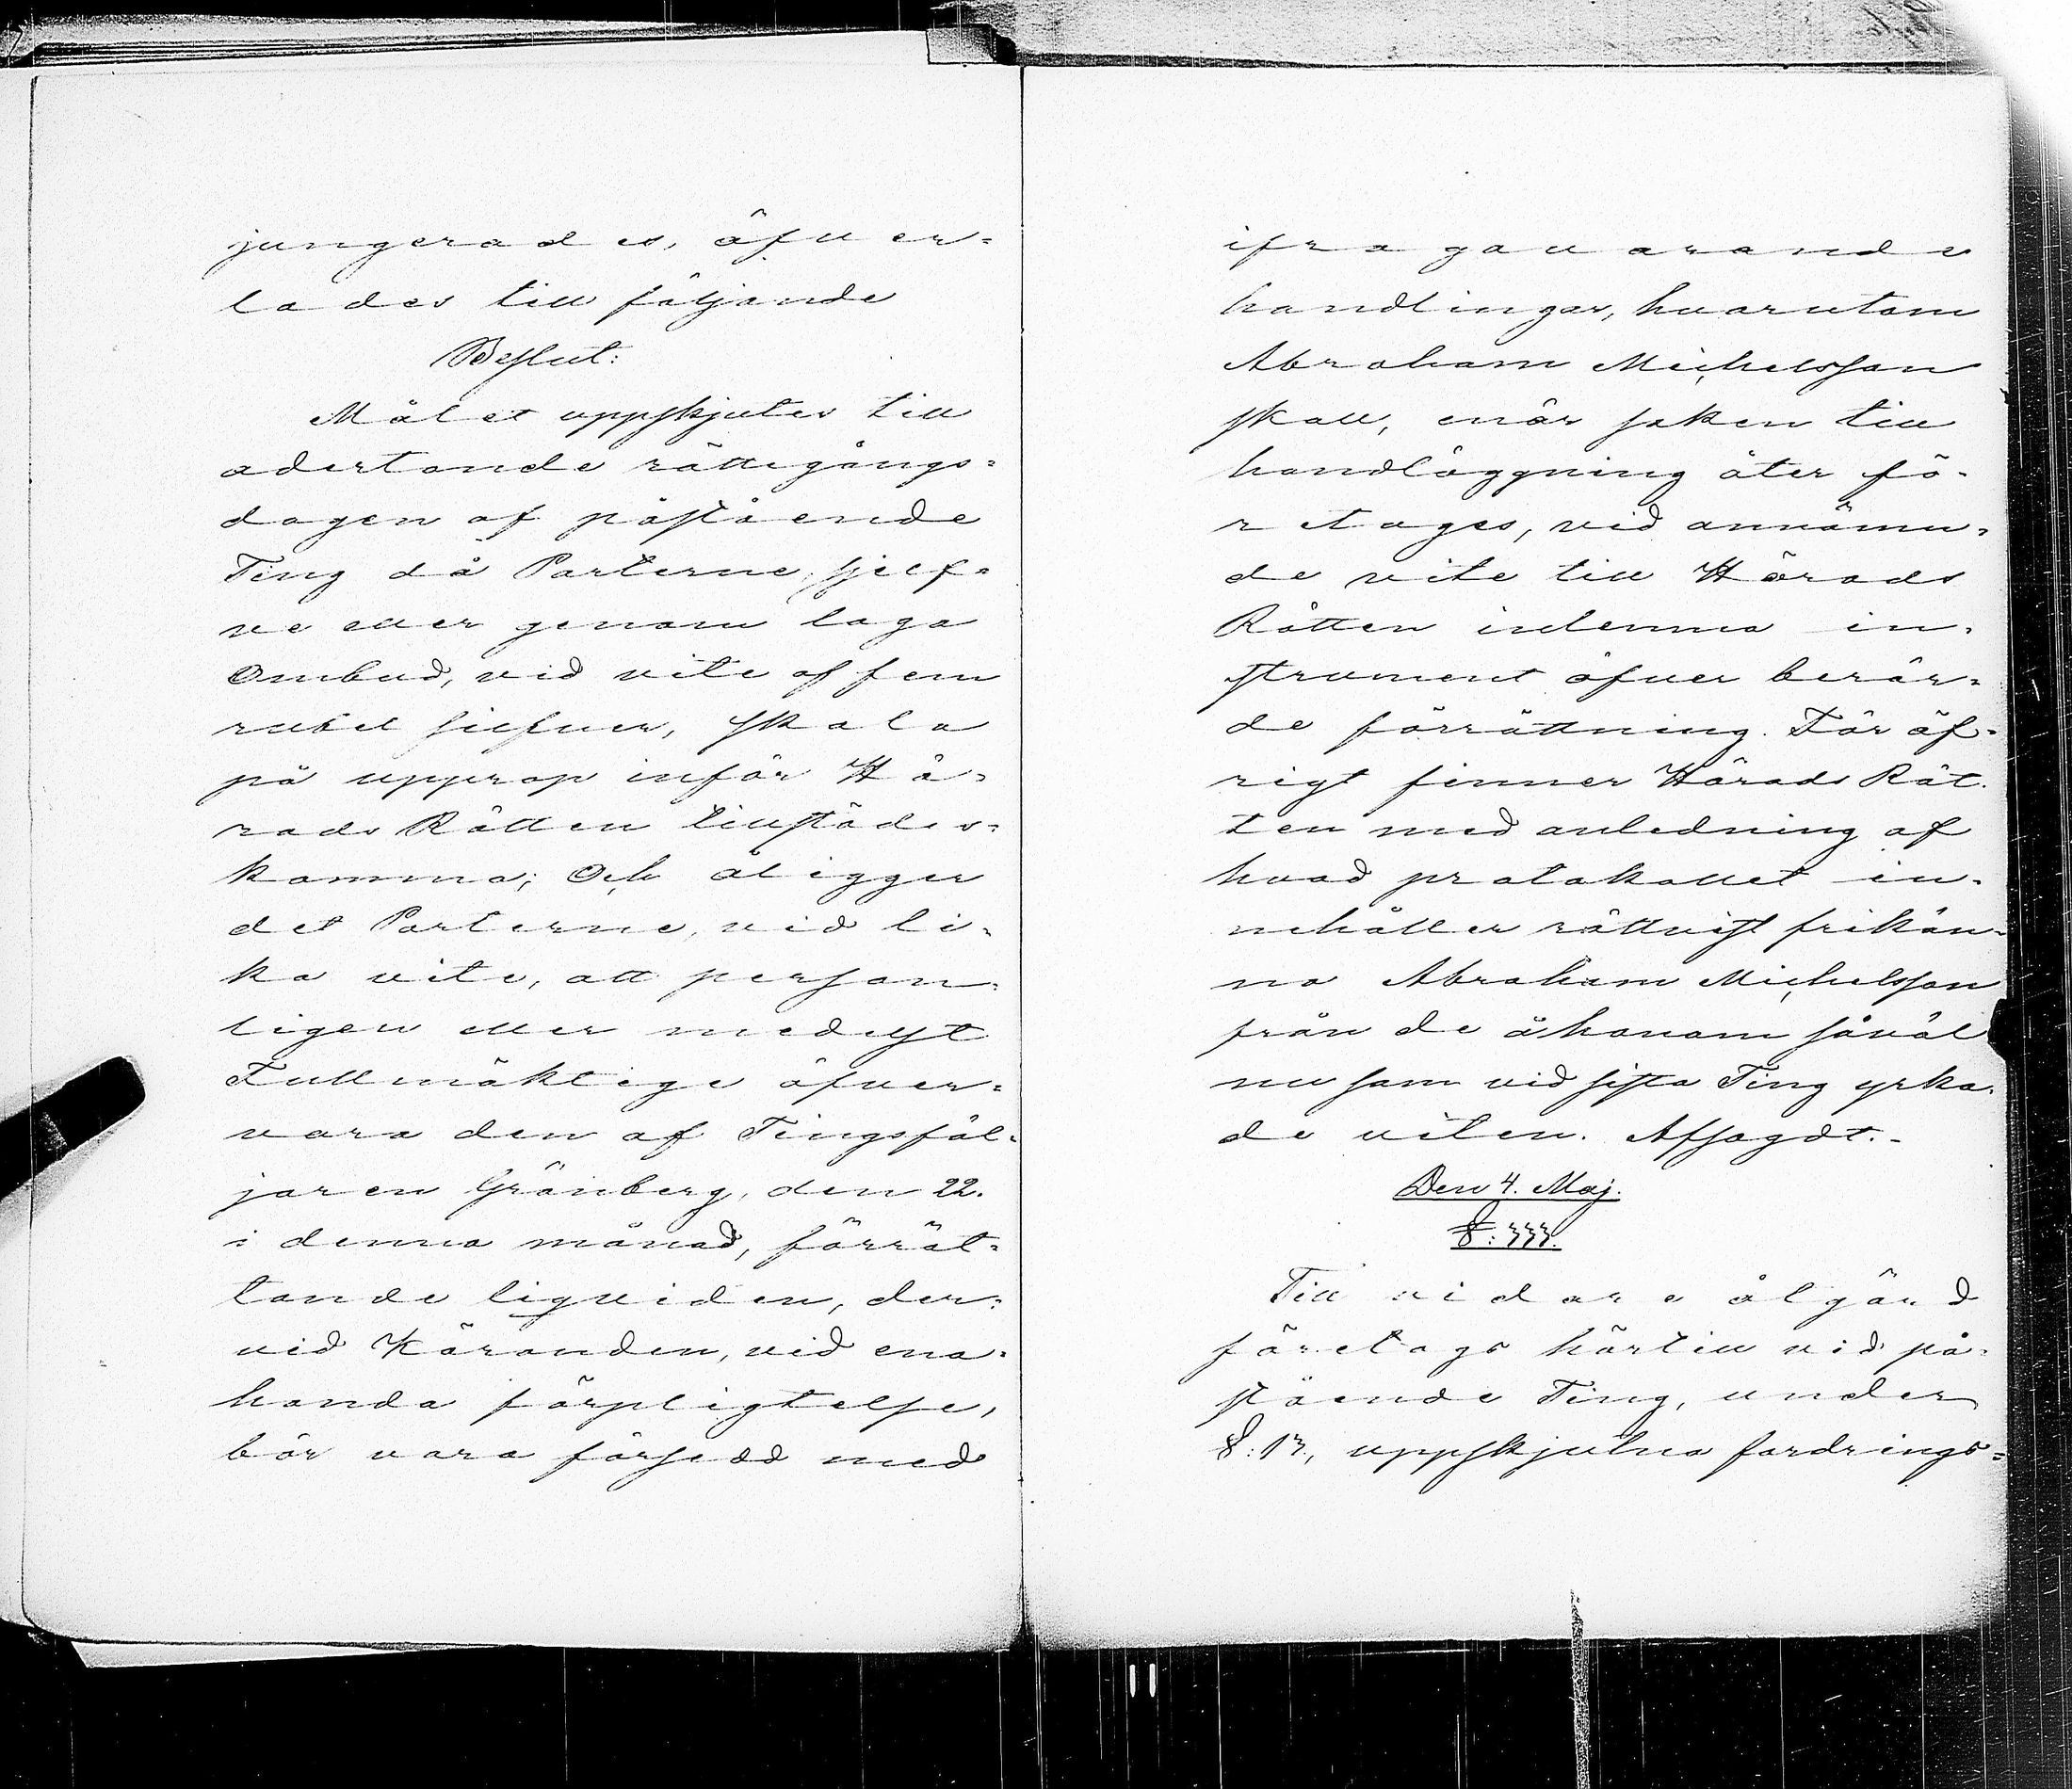 jungerades, öfver-
lades till följande
Beslut:
Målet uppskjutes till
adertonde rättegångs-
dagen af påstående
Ting då Parterne, sjelf-
ve eller genom laga
Ombud, vid vite af fem
rubel silfver, skola
på upprop inför Hä-
rads Rätten tillstädes-
komma; Och åligger
det Parterne, vid li-
ka vite, att person-
ligen eller medelst
Fullmäktige öfver-
vara den af Tingsföl-
jaren Grönberg, den 22.
i denna månad, förrät-
tande liqviden, der-
vid Käranden, vid ena-
handa förpligtelse,
bör vara försedd med
ifragavarande
handlingar, hvarutom
Abraham Michelsson
skall, enär saken till
handläggning åter fö-
retages, vid annämn-
de vite till Härads
Rätten inlemna in-
strument öfver berör-
de förrättning. För öf-
rigt finner Härads Rät-
ten med anledning af
hvad protokollet in-
nehåller rättvist frikän-
na Abraham Michelsson
från de å honom såväl
nu som vid sista Ting yrka-
de viten. Afsagdt.-
Den 4. Maj.
§: 333.
Till vidare åtgärd
företogs härtill vid på-
stående Ting, under
§: 17, uppskjutna fordrings-